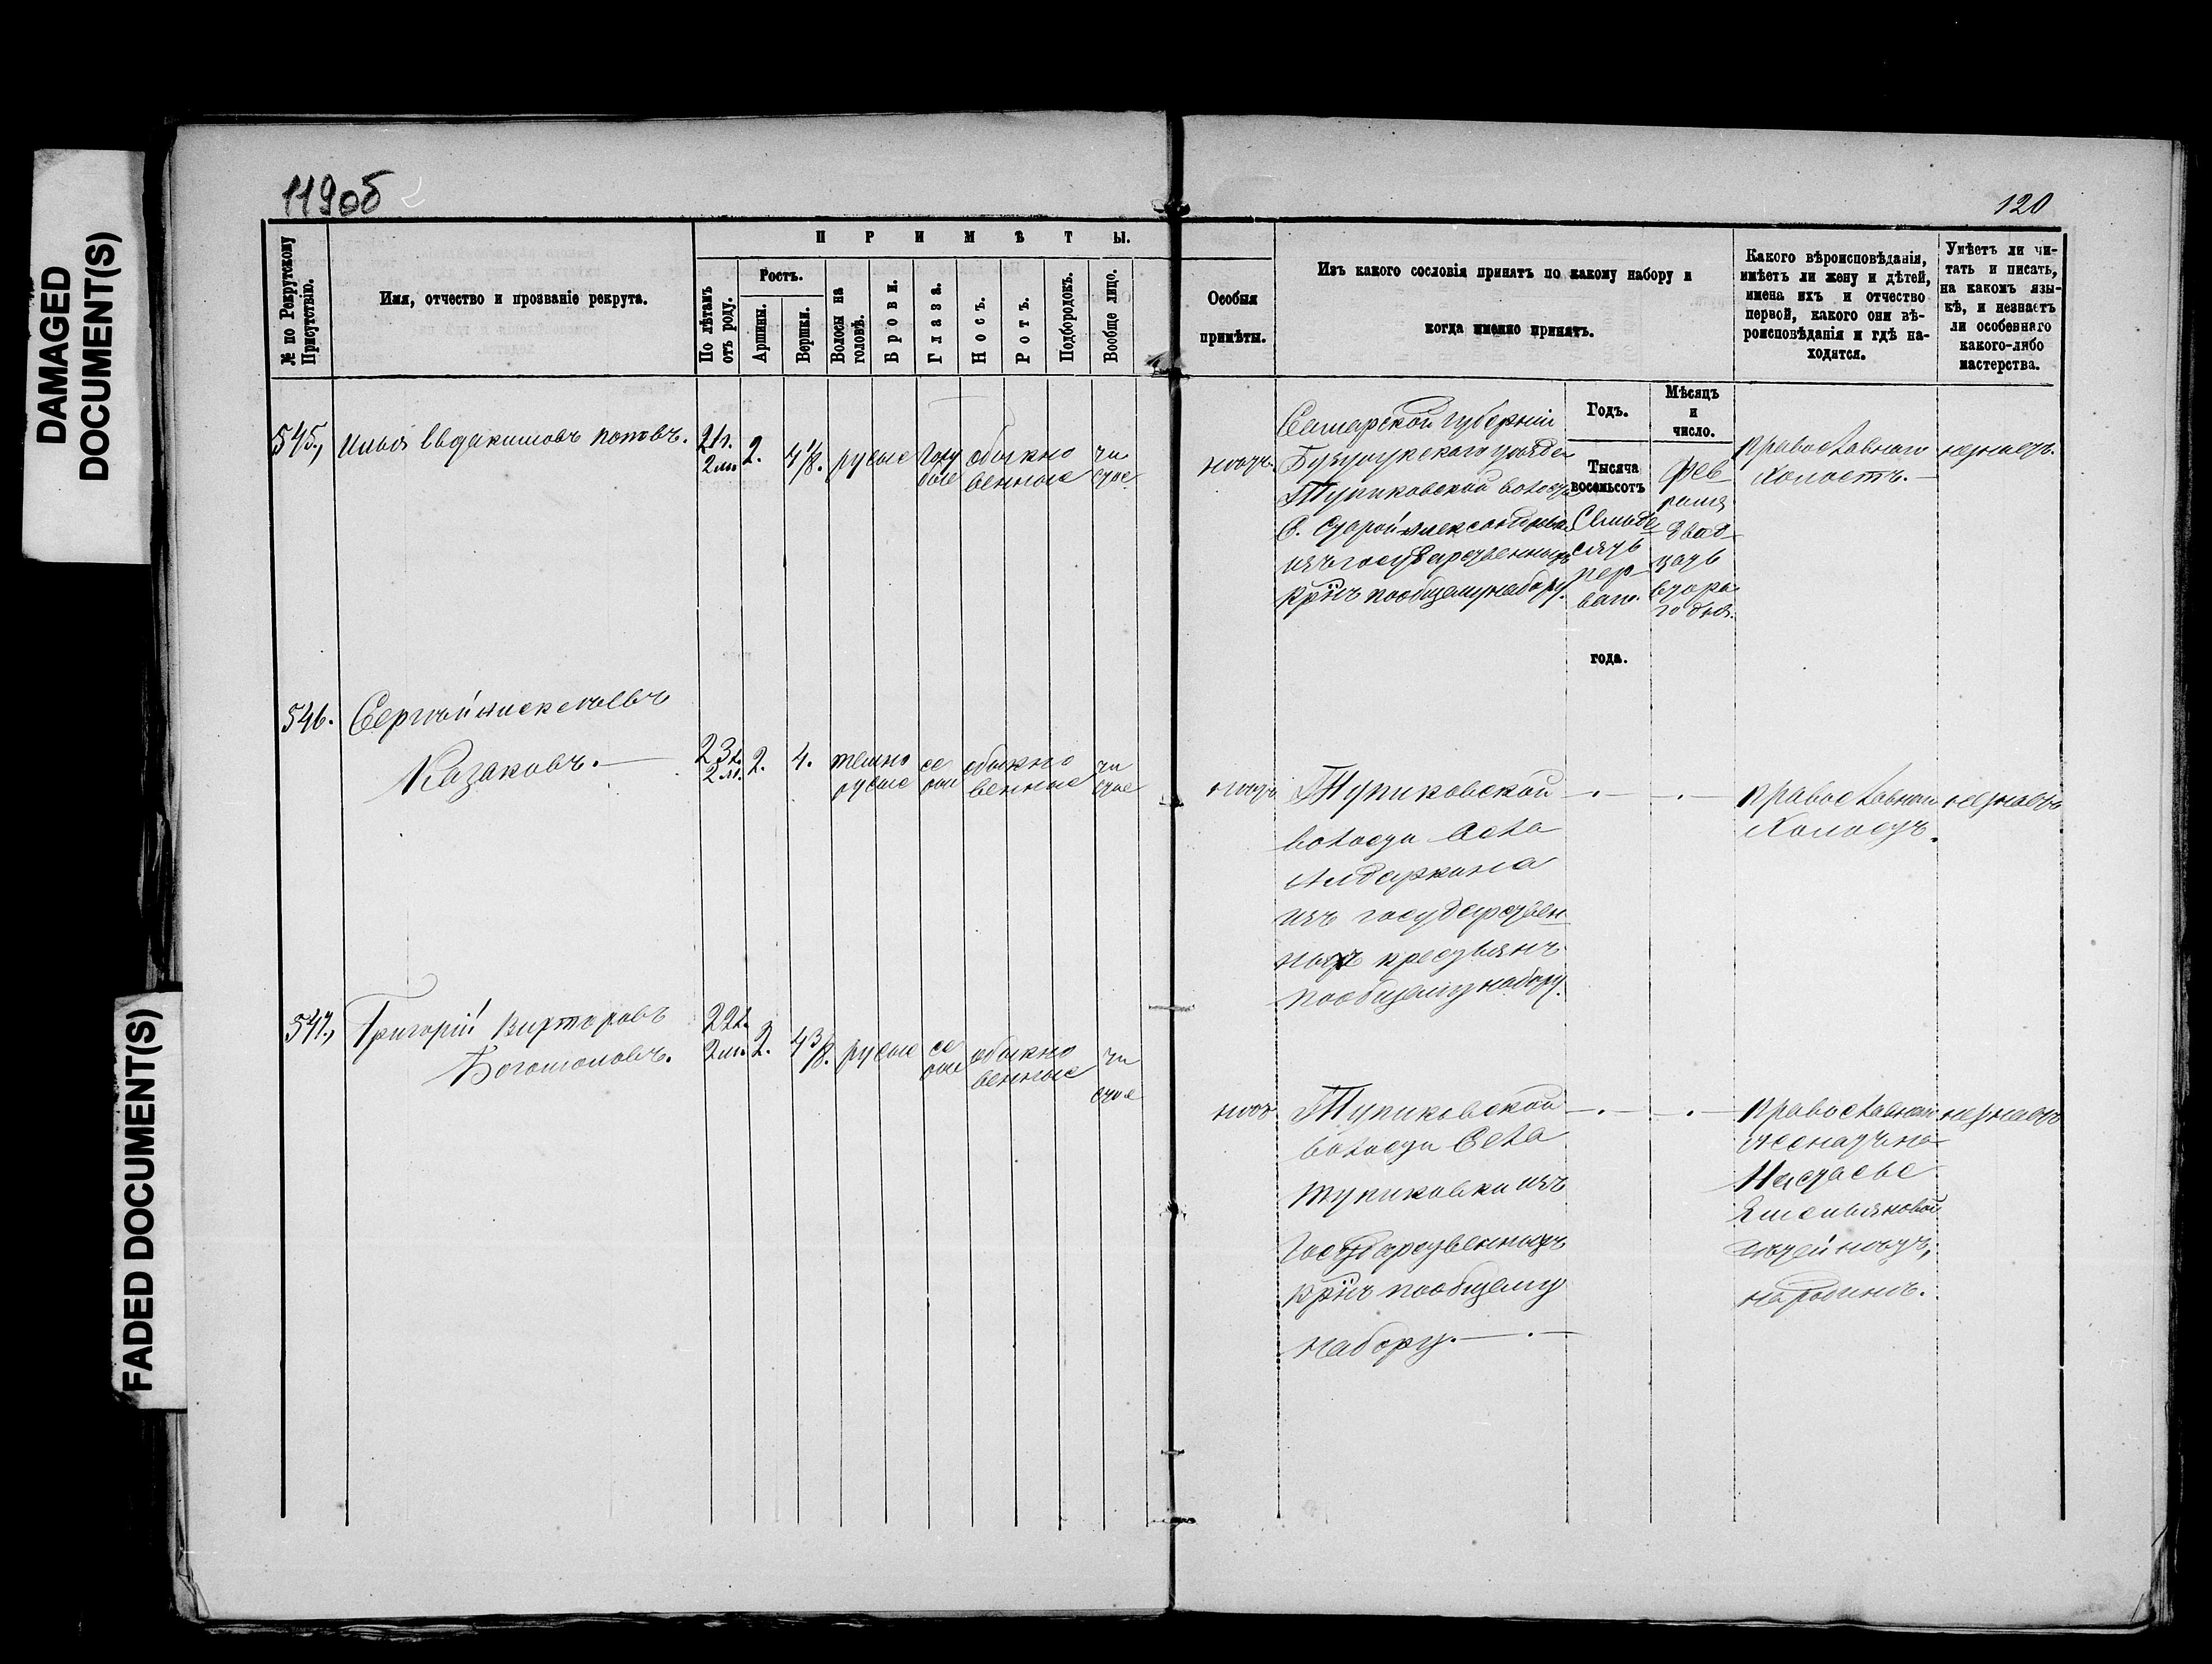 DAMAGED
DOCUMENT(S)
FADED DOCUMENT(S)
119об
120
№ по Рекрутскому
Присутствію.
Имя, отчество и прозваніе рекрута.
ПРИМѢТЫ.
По лѣтамъ
отъ роду.
Ростъ.
Аршины.
Вершки.
Волосы на
головѣ.
Брови.
Глаза.
Носъ.
Ротъ.
Подбородокъ.
Вообще лицо.
Особыя
примѣты.
Изъ какого сословія принятъ по какому набору и
когда именно принятъ.
Какого вѣроисповѣданія,
имѣетъ ли жену и дѣтей,
имена ихъ и отчество
первой, какого они вѣ-
роисповѣданія и гдѣ на-
ходятся.
Умѣетъ ли чи-
тать и писать,
на какомъ язы-
кѣ, и незнаетъ
ли особеннаго
какого-либо
мастерства.
Годъ.
Мѣсяцъ
и
число.
Тысяча
восемьсотъ
года.
545.,
Илья Евдакимовъ Поповъ.
21л.
2м.
2.
4 1/8.
русые
голу
бые
обыкно
венные
чи
стое
нѣтъ
Самарской губерніи
Бузулукскаго уѣзда
Тупиковской волости
С. Старой Александровки
изъ государственныхъ
крнъ пообщему набору.
Семьде
сятъ
пер
ваго.
Фев
раля
двад
цать
втора
го дня.
православнаго
Холостъ.
незнаетъ.
546.
Сергѣй Алексѣевъ
Казаковъ.
23л.
2м.
2.
4.
темно
русые
се
рые
обыкно
венные
чи
стое
нѣтъ
Тупиковской
волости села
Алдаркина
изъ государствен
ныхъ крестьянъ
пообщему набору.
православнаго
Холостъ.
незнаетъ
547.,
Григорій Викторовъ
Богомоловъ.
22л.
2м.
2.
4 3/8.
русые
се
рые
обыкно
венные
чи
стое
нѣтъ
Тупиковской
волости Села
Тупиковки изъ
Государственныхъ
крнъ пообщему
набору.
православнаго
женатъ на
Настасье
Емельяновой
дѣтей нѣтъ,
народинѣ.
незнаетъ